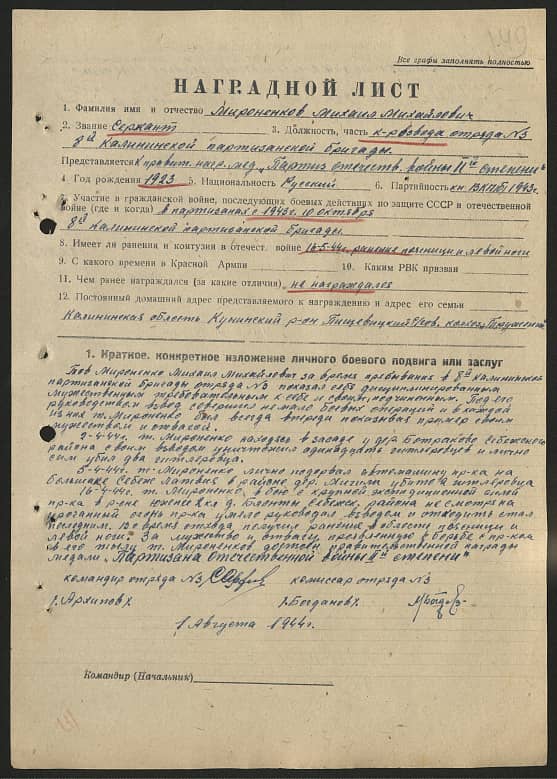 Все графы заполнять полностью
НАГРАДНОЙ ЛИСТ
1. Фамилия имя и отчество Мироненков Михаил Михайлович
2. Звание Сержант 3. Должность, часть к-р взвода отряда №3
8й Калининской партизанской бригады.
Представляется к правит. наг. мед. „Партиз отечеств. войны II й степени"
4 Год рождения 1923 5. Национальность Русский 6. Партийность кн. ВКП(б) 1943г.
5. Участие в гражданской войне, последующих боевых действиях по защите СССР в отечественной
войне (где и когда) в партизанах с 1943г. 10 октября
8й Калининской партизанской бригады.
8. Имеет ли ранения и контузии в отечест. войне 16-5-44г. ранение поясницы и левой ноги
9. С какого времени в Красной Армии 10. Каким РВК призван
11. Чем ранее награждался (за какие отличия) не награждался
12. Постоянный домашний адрес представляемого к награждению и адрес его семьи
Калининская область Кунинский р-он с/сов. колхоз
1. Краткое, конкретное изложение личного боевого подвига или заслуг
Тов Мироненко Михаил Михайлович за время пребывания в 8й Калининской
партизанской бригады отряда №3 показал себя дисциплинированным
мужественным требовательным к себе и своим подчиненным. Под его
руководством взвод совершил немало боевых операций и в каждой
из них т. Мироненко был всегда впереди показывая пример своим
мужеством и отвагой.
2-4-44г. т. Мироненко находясь в засаде у дер Себежского
района своим взводом уничтожил одинадцать гитлеровцев и лично
сам убил два гитлеровца.
5-4-44г. т. Мироненко лично подорвал автомашину пр-ка на
большаке Себеж Латвия в районе дер. убито гитлеровца
16-4-44г. т. Мироненко в бою с крупной экспедиционной силой
пр-ка в роне д. Себежск. района не смотря на
ураганный огонь пр-ка умело руководил взводом и отходить стал
последним. Во время отхода получил ранение в области поясницы и
левой ноги. За мужество и отвагу проявленную в борьбе с пр-ком
в его тылу т. Мироненков достоен правительственной награды
медали „Партизана Отечественной войны II й степени"
командир отряда №3 комиссар отряда №3
/Архипов/ /Богданов/
1 Августа 1944г.
Командир (Начальник)